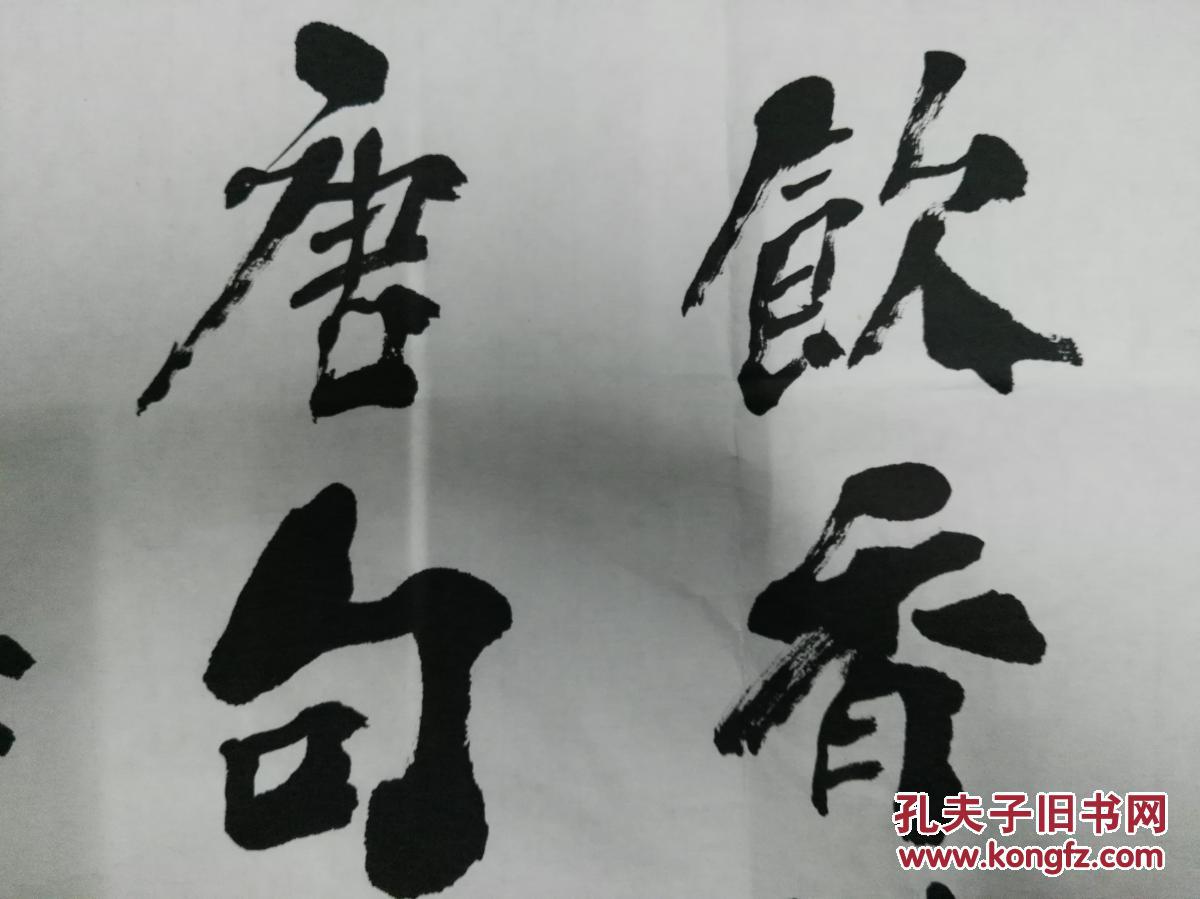 飲香
唐句
孔夫子旧书网
www.kongfz.com